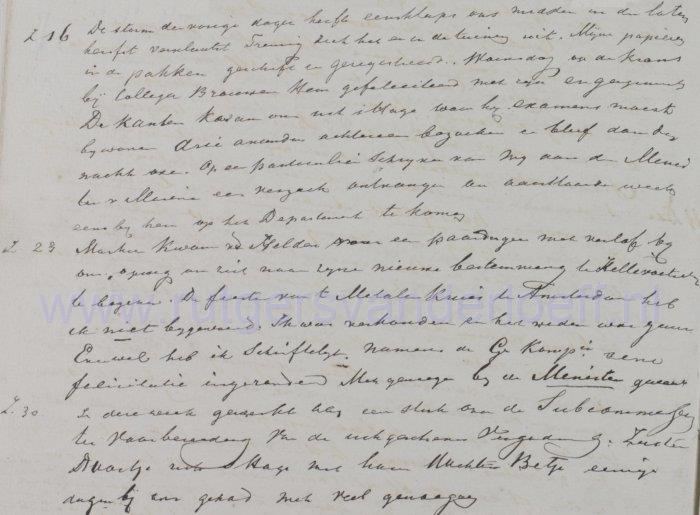 Z. 16 De storm der vorige dagen heeft eensklaps ons midden in den laten
herfst verplaatst Treurig ziet het er in de tuinen uit. Mijne papieren
in de pakken geschift en geregistreerd. Woensdag
bij Collega Brouwer Hem gefeliciteerd met zijn
De kwam over uit s'Hage waar hij examens moest
bijwonen drie avonden achtereen bezoeken en bleef dan den
nacht over. Op een particulier schrijven van mij aan den Minis
ter v Marine een verzoek ontvangen om aanstaande week
eens bij hem op het Departement te komen
Z. 23 Martin kwam v/d Helder voor een paar dagen met verlof bij
ons, om zich naar zijne nieuwe bestemming te Hellevoetsluis
te begeven. De feesten van 't Metalen Kruis te Amsterdam heb
ik niet bijgewoond. Ik was verhouden en het weder was guur
Evenwel heb ik Schriftelijk, namens de Gr Komp.ie eene
felicitatie ingezonden Met genoegen bij de Minister geweest
Z. 30 In deze week gewerkt aan een stuk van de Subcommissie
ter voorbereiding van de uitgeschreven Vergadering te Zeist
Doortje uit s Hage met haar Dochter Betje eenige
dagen bij ons gehad met veel genoegen
www.rutgersvanderloeff.nl